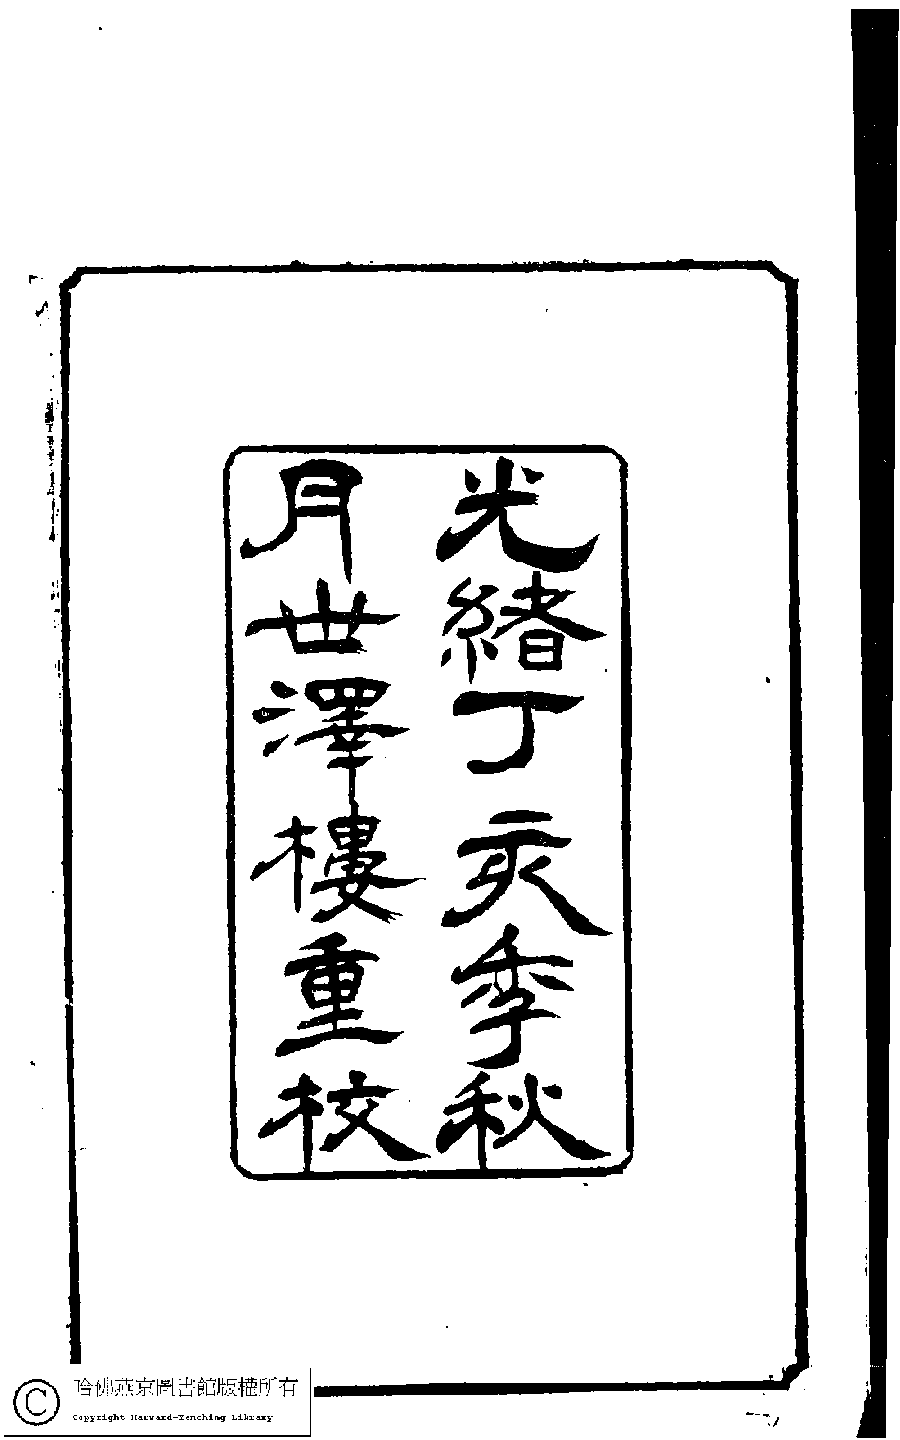 光緒丁亥季秋
月世澤樓重校
哈佛燕京圖書館版權所有
Copyright Harvard-Yenching Library